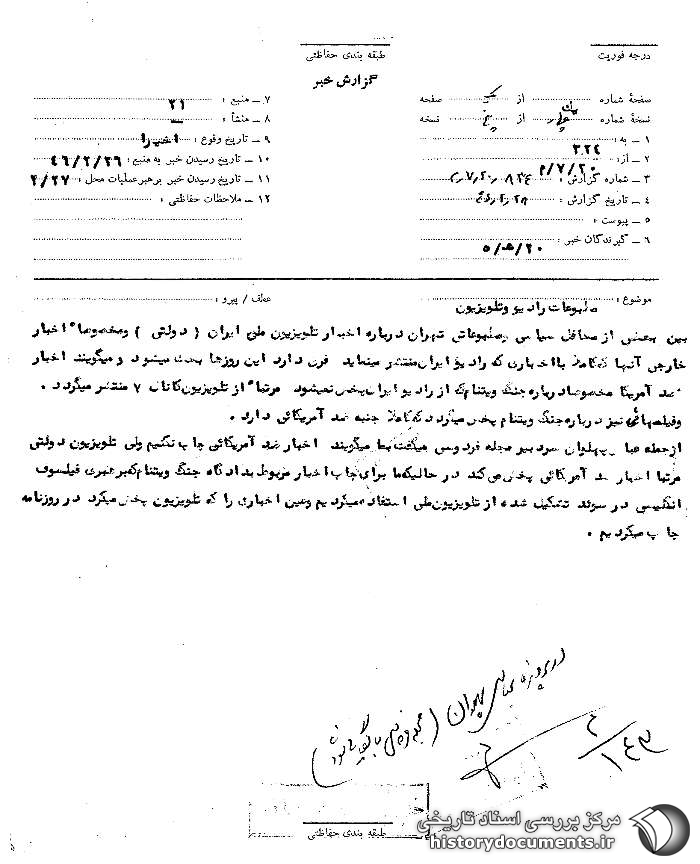 درجه فوریت
طبقه بندی حفاظتی
گزارش خبر
صفحهٔ شماره از صفحه
نسخهٔ شماره از نسخه
۱ ـ به :
۲ ـ از : ۳۲۴
۳ ـ شماره گزارش :
۴ ـ تاریخ گزارش :
۵ ـ پیوست :
۶ ـ گیرندگان خبر : ۲۰/ه۵
۷ ـ منبع : ۲۱
۸ ـ منشأ : ـ
۹ ـ تاریخ وقوع : اخیرا
۱۰ ـ تاریخ رسیدن خبر به منبع : ۴۶/۲/۲۶
۱۱ ـ تاریخ رسیدن خبر برهبرعملیات محل : ۲/۲۷
۱۲ ـ ملاحظات حفاظتی :
موضوع : مطبوعات رادیو وتلویزیون
عطف / پیرو :
بین بعضی از محافل سیاسی ومطبوعاتی تهران درباره اخبار تلویزیون ملی ایران ( دولتی ) ومخصوصا" اخبار
خارجی آنها که کاملا بااخباری که رادیو ایران منتشر مینماید فرق دارد این روزها بحث میشود و میگویند اخبار
ضد آمریکا مخصوصا درباره جنگ ویتنام که از رادیو ایران پخش نمیشود مرتبا" از تلویزیون کانال ۷ منتشر میگردد .
وفیلمهائی نیز درباره جنگ ویتنام پخش میگردد که کاملا جنبه ضد آمریکائی دارد .
ازجمله عباس پهلوان سردبیر مجله فردوسی میگفت بما میگویند اخبار ضد آمریکائی چاپ نکنیم ولی تلویزیون دولتی
مرتبا اخبار ضد آمریکائی پخش می کند در حالیکه ما برای چاپ اخبار مربوط بدادگاه جنگ ویتنام که برهبری فیلسوف
انگلیسی در سوئد تشکیل شده از تلویزیون ملی استفاده میکردیم وعین اخباری را که تلویزیون پخش میکرد در روزنامه
چاپ میکردیم .
در پرونده عباس پهلوان
۱۴۳
طبقه بندی حفاظتی
مرکز بررسی اسناد تاریخی
historydocuments.ir